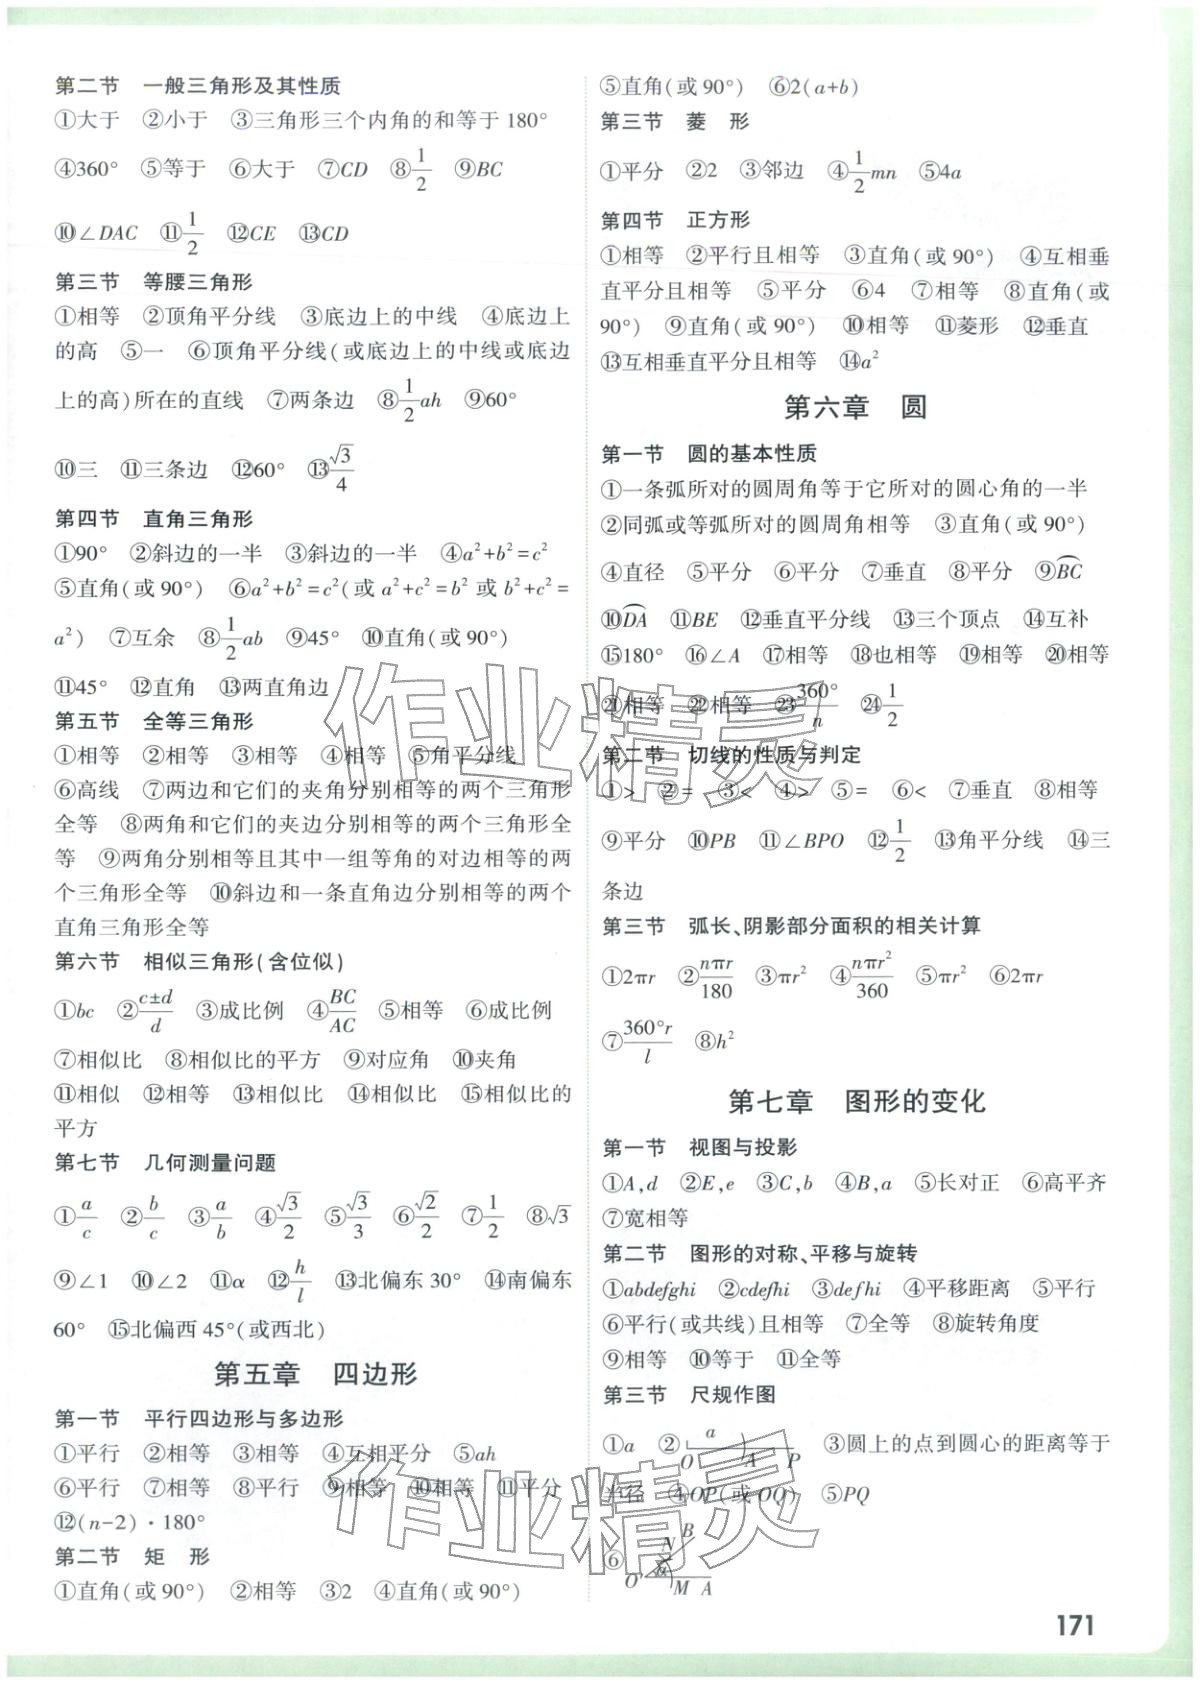 第二节 一般三角形及其性质
①大于 ②小于 ③三角形三个内角的和等于180°
④360° ⑤等于 ⑥大于 ⑦CD ⑧1/2 ⑨BC
⑩∠DAC ⑪1/2 ⑫CE ⑬CD
第三节 等腰三角形
①相等 ②顶角平分线 ③底边上的中线 ④底边上
的高 ⑤一 ⑥顶角平分线(或底边上的中线或底边
上的高)所在的直线 ⑦两条边 ⑧1/2ah ⑨60°
⑩三 ⑪三条边 ⑫60° ⑬√3/4
第四节 直角三角形
①90° ②斜边的一半 ③斜边的一半 ④a²+b²=c²
⑤直角(或90°) ⑥a²+b²=c²(或a²+c²=b²或b²+c²=
a²) ⑦互余 ⑧1/2ab ⑨45° ⑩直角(或90°)
⑪45° ⑫直角 ⑬两直角边
第五节 全等三角形
①相等 ②相等 ③相等 ④相等 ⑤角平分线
⑥高线 ⑦两边和它们的夹角分别相等的两个三角形
全等 ⑧两角和它们的夹边分别相等的两个三角形全
等 ⑨两角分别相等且其中一组等角的对边相等的两
个三角形全等 ⑩斜边和一条直角边分别相等的两个
直角三角形全等
第六节 相似三角形(含位似)
①bc ②c±d/d ③成比例 ④BC/AC ⑤相等 ⑥成比例
⑦相似比 ⑧相似比的平方 ⑨对应角 ⑩夹角
⑪相似 ⑫相等 ⑬相似比 ⑭相似比 ⑮相似比的
平方
第七节 几何测量问题
①a/c ②b/c ③a/b ④√3/2 ⑤√3/3 ⑥√2/2 ⑦1/2 ⑧√3
⑨∠1 ⑩∠2 ⑪α ⑫h/l ⑬北偏东30° ⑭南偏东
60° ⑮北偏西45°(或西北)
第五章 四边形
第一节 平行四边形与多边形
①平行 ②相等 ③相等 ④互相平分 ⑤ah
⑥平行 ⑦相等 ⑧平行 ⑨相等 ⑩相等 ⑪平分
⑫(n-2)·180°
第二节 矩 形
①直角(或90°) ②相等 ③2 ④直角(或90°)
⑤直角(或90°) ⑥2(a+b)
第三节 菱 形
①平分 ②2 ③邻边 ④1/2mn ⑤4a
第四节 正方形
①相等 ②平行且相等 ③直角(或90°) ④互相垂
直平分且相等 ⑤平分 ⑥4 ⑦相等 ⑧直角(或
90°) ⑨直角(或90°) ⑩相等 ⑪菱形 ⑫垂直
⑬互相垂直平分且相等 ⑭a²
第六章 圆
第一节 圆的基本性质
①一条弧所对的圆周角等于它所对的圆心角的一半
②同弧或等弧所对的圆周角相等 ③直角(或90°)
④直径 ⑤平分 ⑥平分 ⑦垂直 ⑧平分 ⑨⌒BC
⑩⌒DA ⑪BE ⑫垂直平分线 ⑬三个顶点 ⑭互补
⑮180° ⑯∠A ⑰相等 ⑱也相等 ⑲相等 ⑳相等
㉑相等 ㉒相等 ㉓360°/n ㉔1/2
第二节 切线的性质与判定
①> ②= ③< ④> ⑤= ⑥< ⑦垂直 ⑧相等
⑨平分 ⑩PB ⑪∠BPO ⑫1/2 ⑬角平分线 ⑭三
条边
第三节 弧长、阴影部分面积的相关计算
①2πr ②nπr/180 ③πr² ④nπr²/360 ⑤πr² ⑥2πr
⑦360°r/l ⑧h²
第七章 图形的变化
第一节 视图与投影
①A,d ②E,e ③C,b ④B,a ⑤长对正 ⑥高平齐
⑦宽相等
第二节 图形的对称、平移与旋转
①abdefghi ②cdefhi ③defhi ④平移距离 ⑤平行
⑥平行(或共线)且相等 ⑦全等 ⑧旋转角度
⑨相等 ⑩等于 ⑪全等
第三节 尺规作图
①a ② a O A P ③圆上的点到圆心的距离等于
半径 ④OP(或OQ) ⑤PQ
⑥ B N O' M A
171
作业精灵
作业精灵